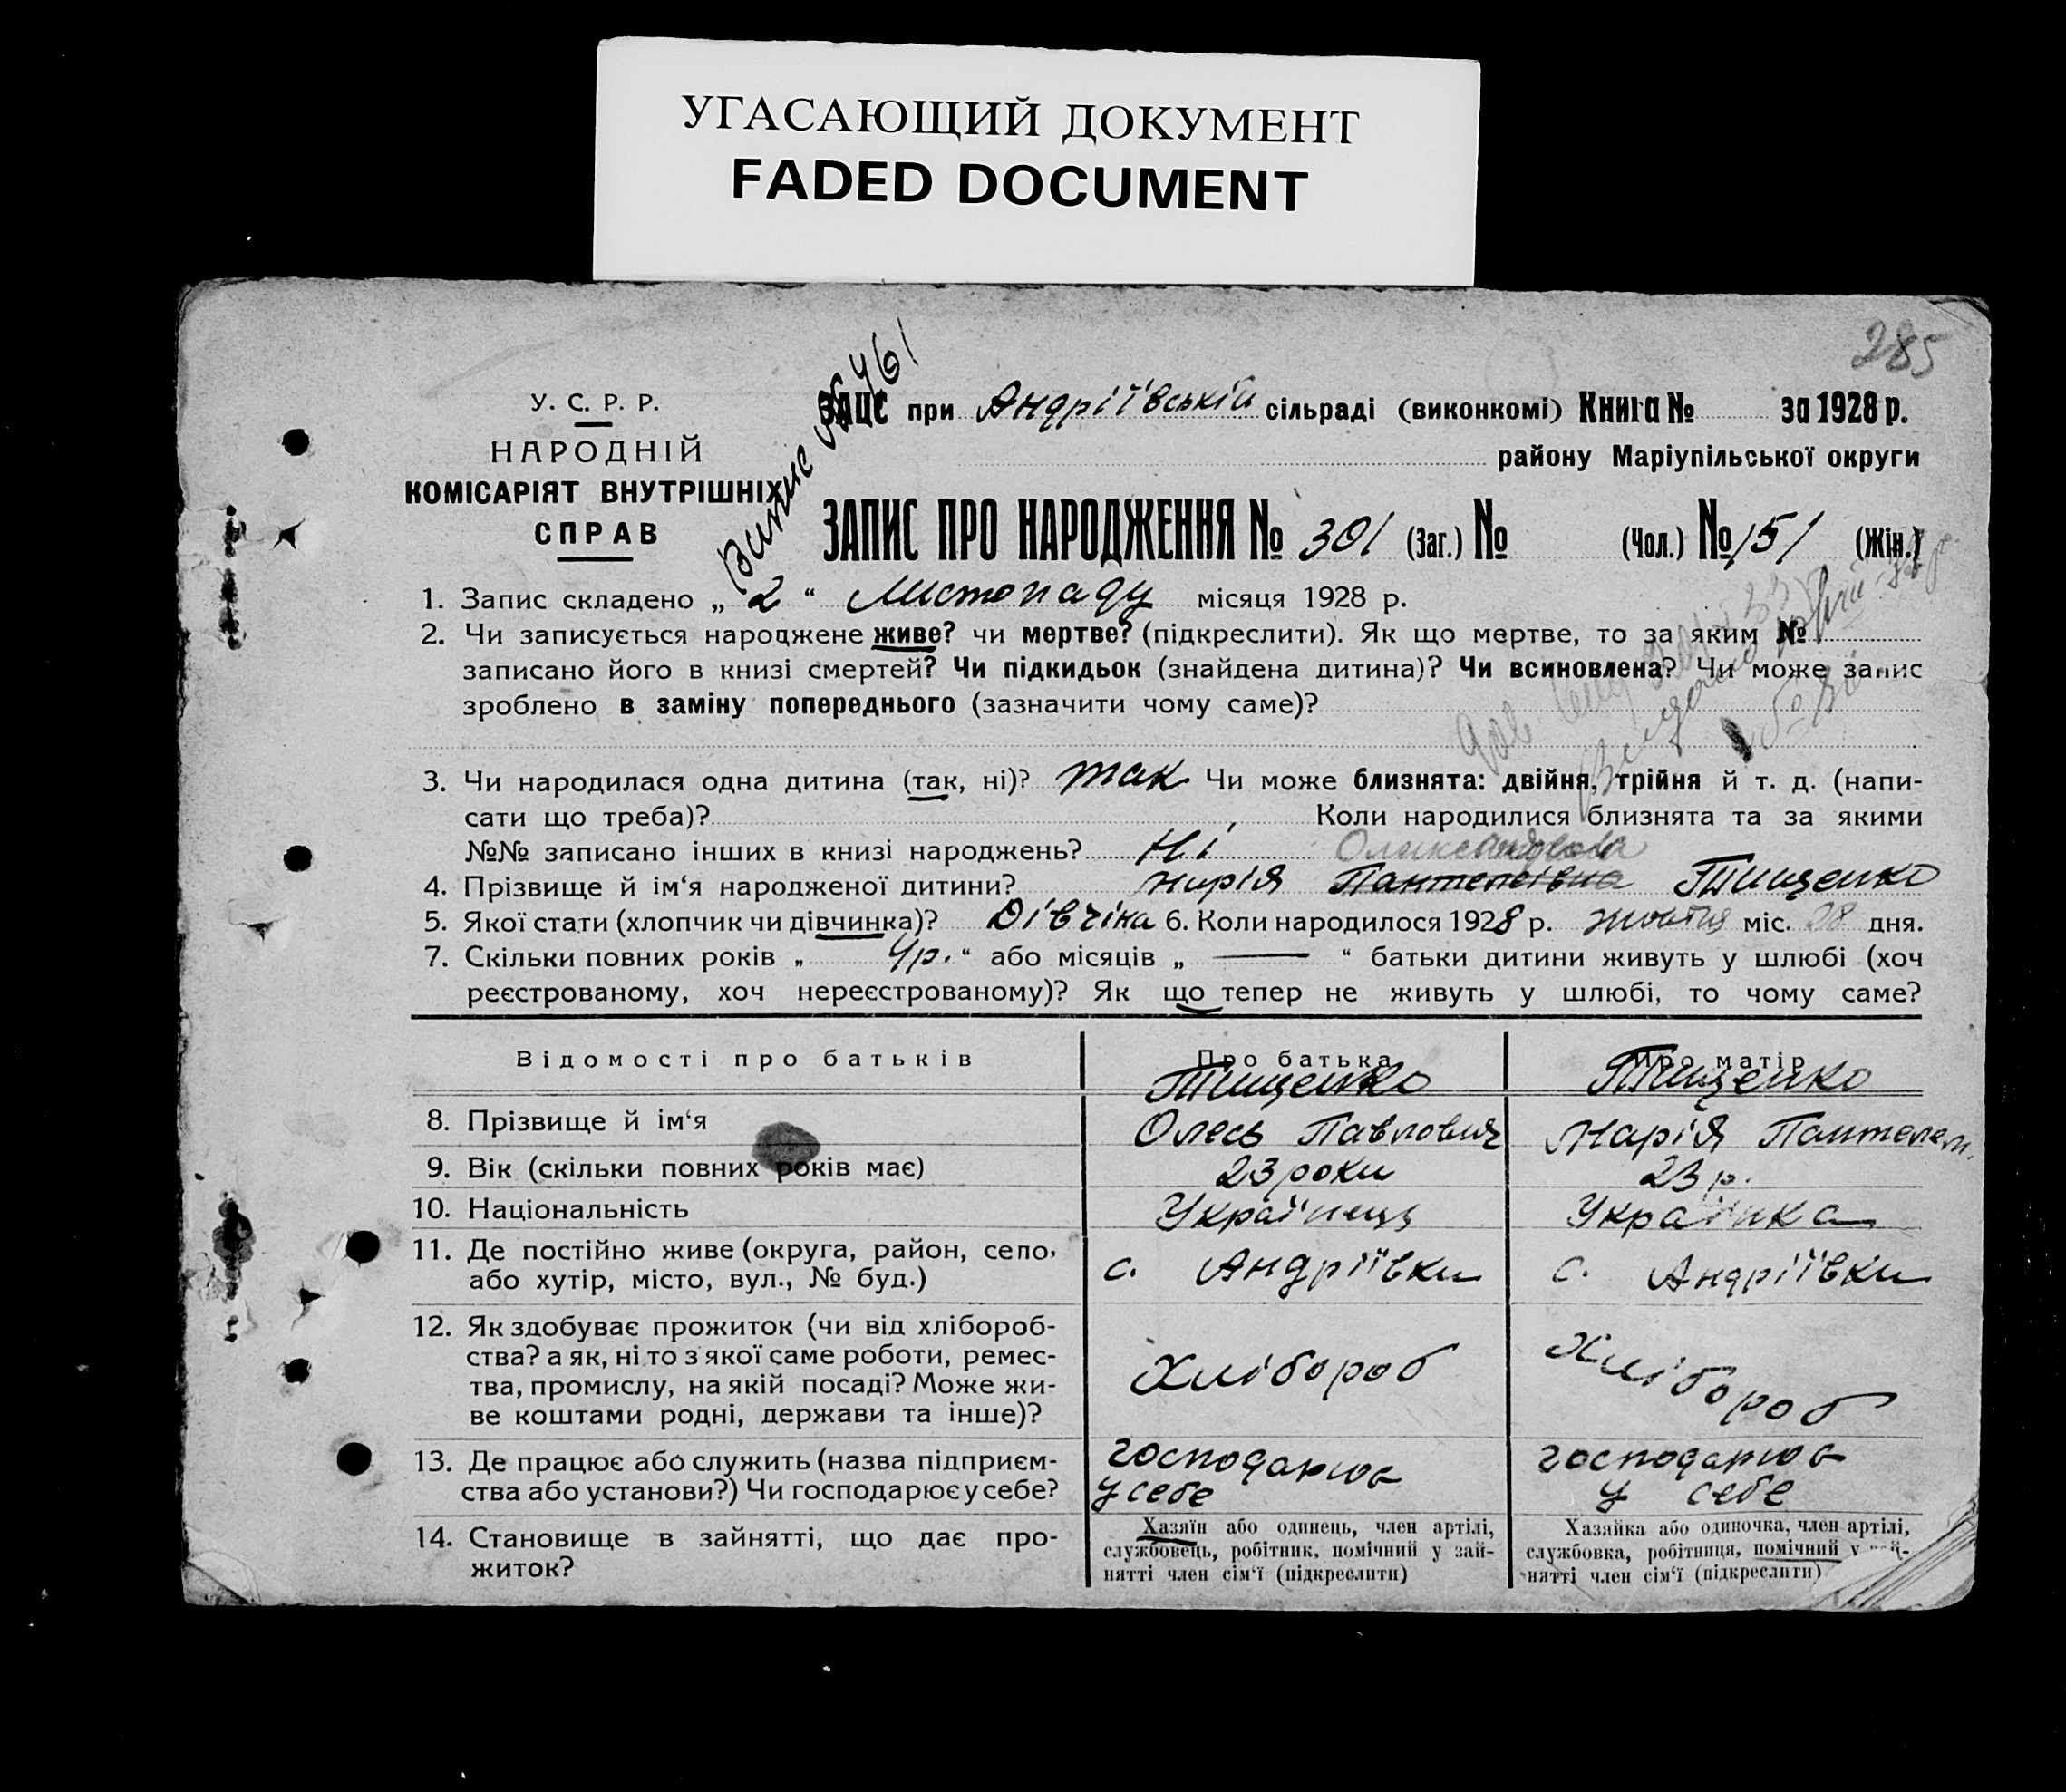 УГАСАЮЩИЙ ДОКУМЕНТ
FADED DOCUMENT
285
У. С. Р. Р.
НАРОДНІЙ
КОМІСАРІЯТ ВНУТРІШНІХ
СПРАВ
Витяг № 461
ЗАЦС при Андріївській сільраді (виконкомі) Книга № за 1928 р.
району Маріупільської округи
ЗАПИС ПРО НАРОДЖЕННЯ № 301 (Заг.) № (Чол.) № 151 (Жін.)
1. Запис складено „ 2 “ Листопаду місяця 1928 р.
2. Чи записується народжене живе? чи мертве? (підкреслити). Як що мертве, то за яким №
записано його в книзі смертей? Чи підкидьок (знайдена дитина)? Чи всиновлена? Чи може запис
зроблено в заміну попереднього (зазначити чому саме)?
3. Чи народилася одна дитина (так, ні)? так Чи може близнята: двійня, трійня й т. д. (напи-
сати що треба)? Коли народилися близнята та за якими
№№ записано інших в книзі народжень? Ні Олександровна
4. Прізвище й ім‘я народженої дитини? Марія Пантеліївна Тищенко
5. Якої стати (хлопчик чи дівчинка)? Дівчіна 6. Коли народилося 1928 р. жовтня міс. 28 дня.
7. Скільки повних років „ 4р. “ або місяців „ — “ батьки дитини живуть у шлюбі (хоч
реєстрованому, хоч нереєстрованому)? Як що тепер не живуть у шлюбі, то чому саме?
Відомості про батьків Про батька Про матір
Тищенко Тищенко
8. Прізвище й ім‘я Олесь Павлович Марія Пантелем.
9. Вік (скільки повних років має) 23 роки 23 р.
10. Національність Українець Українка
11. Де постійно живе (округа, район, село,
або хутір, місто, вул., № буд.) с. Андріївки с. Андріївки
12. Як здобуває прожиток (чи від хлібороб-
ства? а як, ні то з якої саме роботи, ремес-
тва, промислу, на якій посаді? Може жи-
ве коштами родні, держави та інше)? Хлібороб Хлібороб
13. Де працює або служить (назва підприєм-
ства або установи?) Чи господарює у себе? господарює у себе господарює у себе
14. Становище в зайнятті, що дає про-
житок?
Хазяїн або одинець, член артілі,
службовець, робітник, помічний у зай-
нятті член сім‘ї (підкреслити)
Хазяйка або одиночка, член артілі,
службовка, робітниця, помічний у зай-
нятті член сім‘ї (підкреслити)